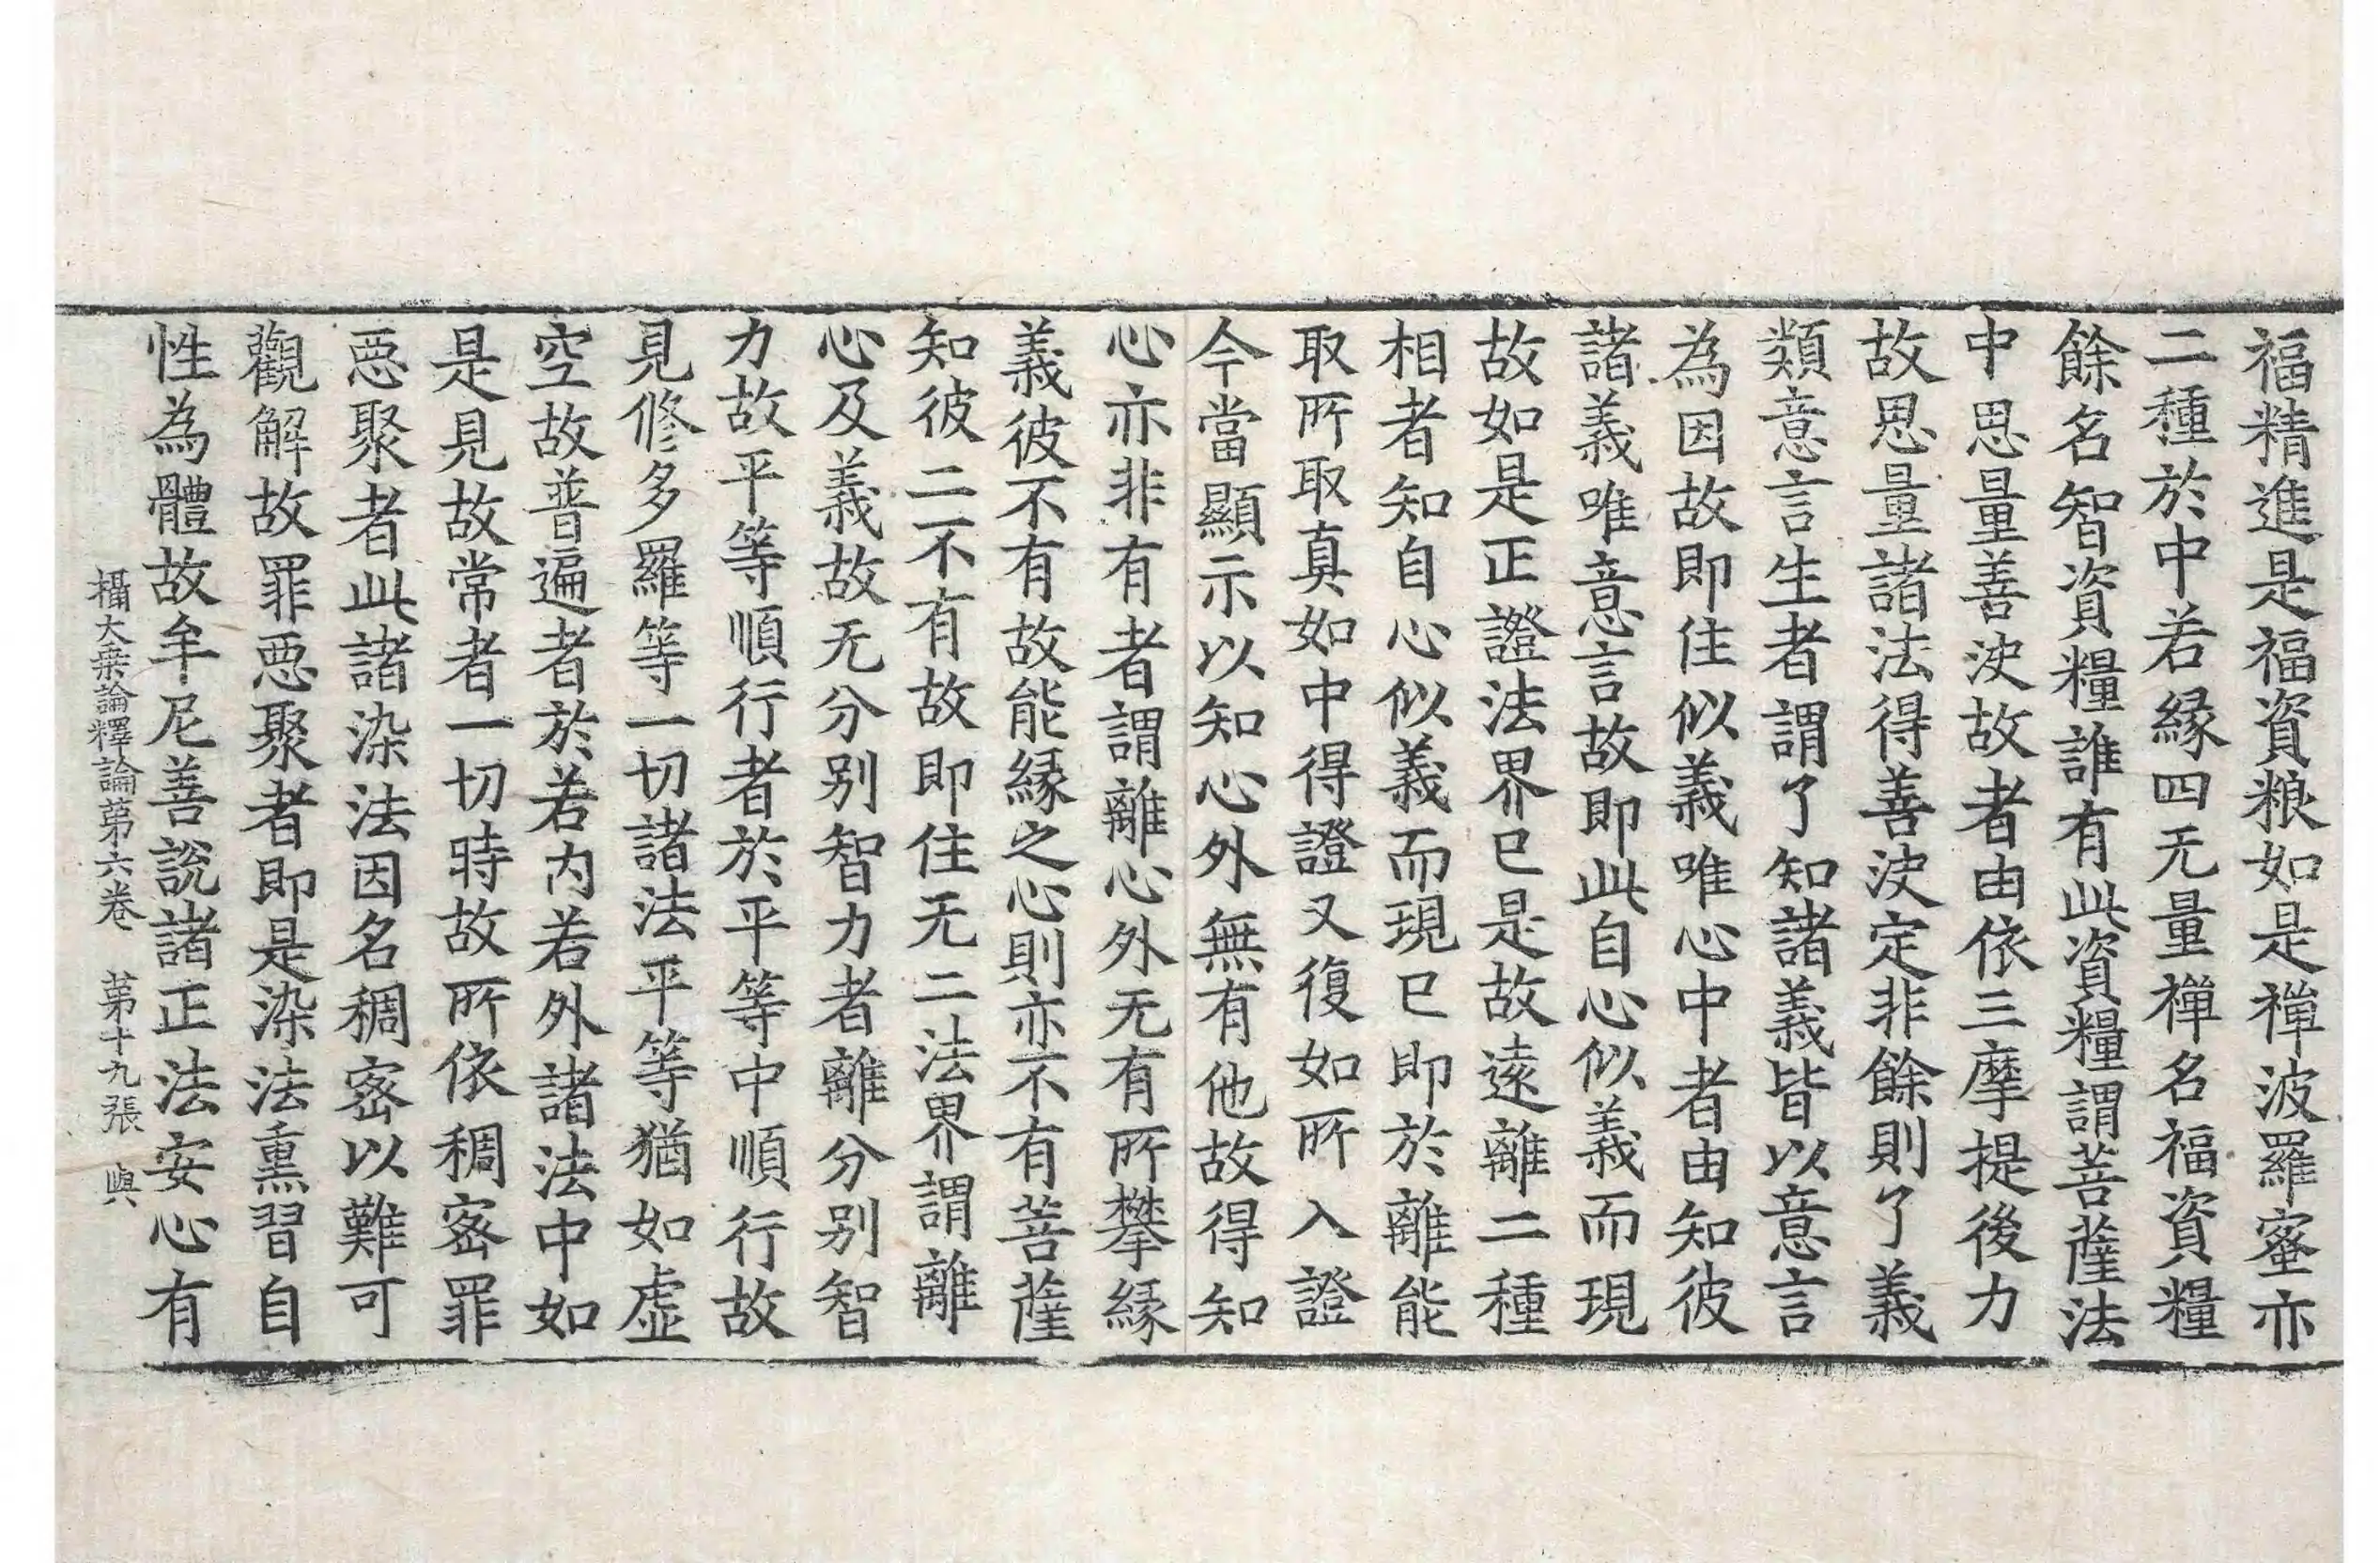 福精進是福資粮如是禪波羅蜜亦
二種於中若縁四无量禪名福資糧
餘名智資糧誰有此資糧謂菩薩法
中思量善决故者由依三摩提後力
故思量諸法得善决定非餘則了義
類意言生者謂了知諸義皆以意言
為因故即住似義唯心中者由知彼
諸義唯意言故即此自心似義而現
故如是正證法界已是故遠離二種
相者知自心似義而現已即於離能
取所取真如中得證又復如所入證
今當顯示以知心外無有他故得知
心亦非有者謂離心外无有所攀縁
義彼不有故能縁之心則亦不有菩薩
知彼二不有故即住无二法界謂離
心及義故无分别智力者離分别智
力故平等順行者於平等中順行故
見修多羅等一切諸法平等猶如虚
空故普遍者於若内若外諸法中如
是見故常者一切時故所依稠宻罪
惡聚者此諸染法因名稠宻以難可
觀解故罪惡聚者即是染法熏習自
性為體故牟尼善說諸正法安心有
攝大乗論釋論第六卷　第十九張　與